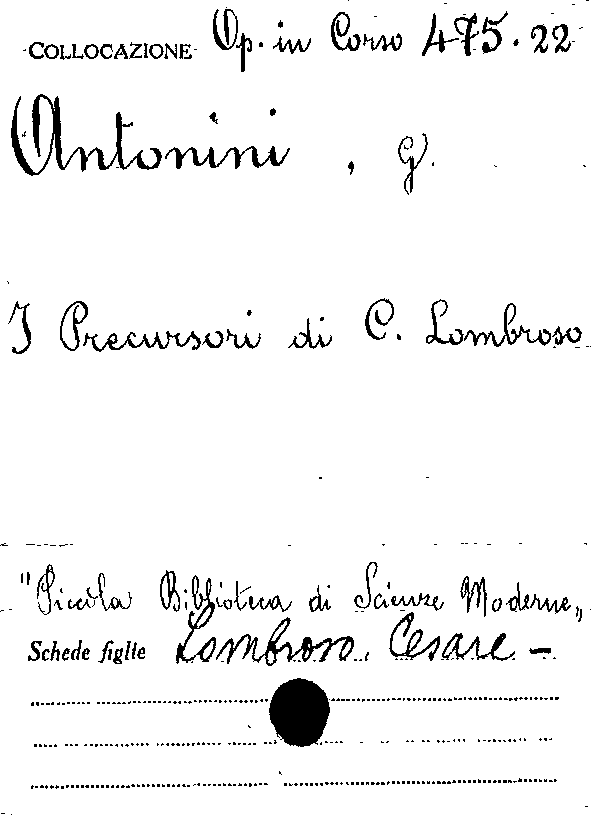 COLLOCAZIONE Op. in Corso 475.22
Antonini, G.
I Precursori di C. Lombroso
"Piccola Biblioteca di Scienze Moderne„
Schede figlie Lombroso, Cesare -